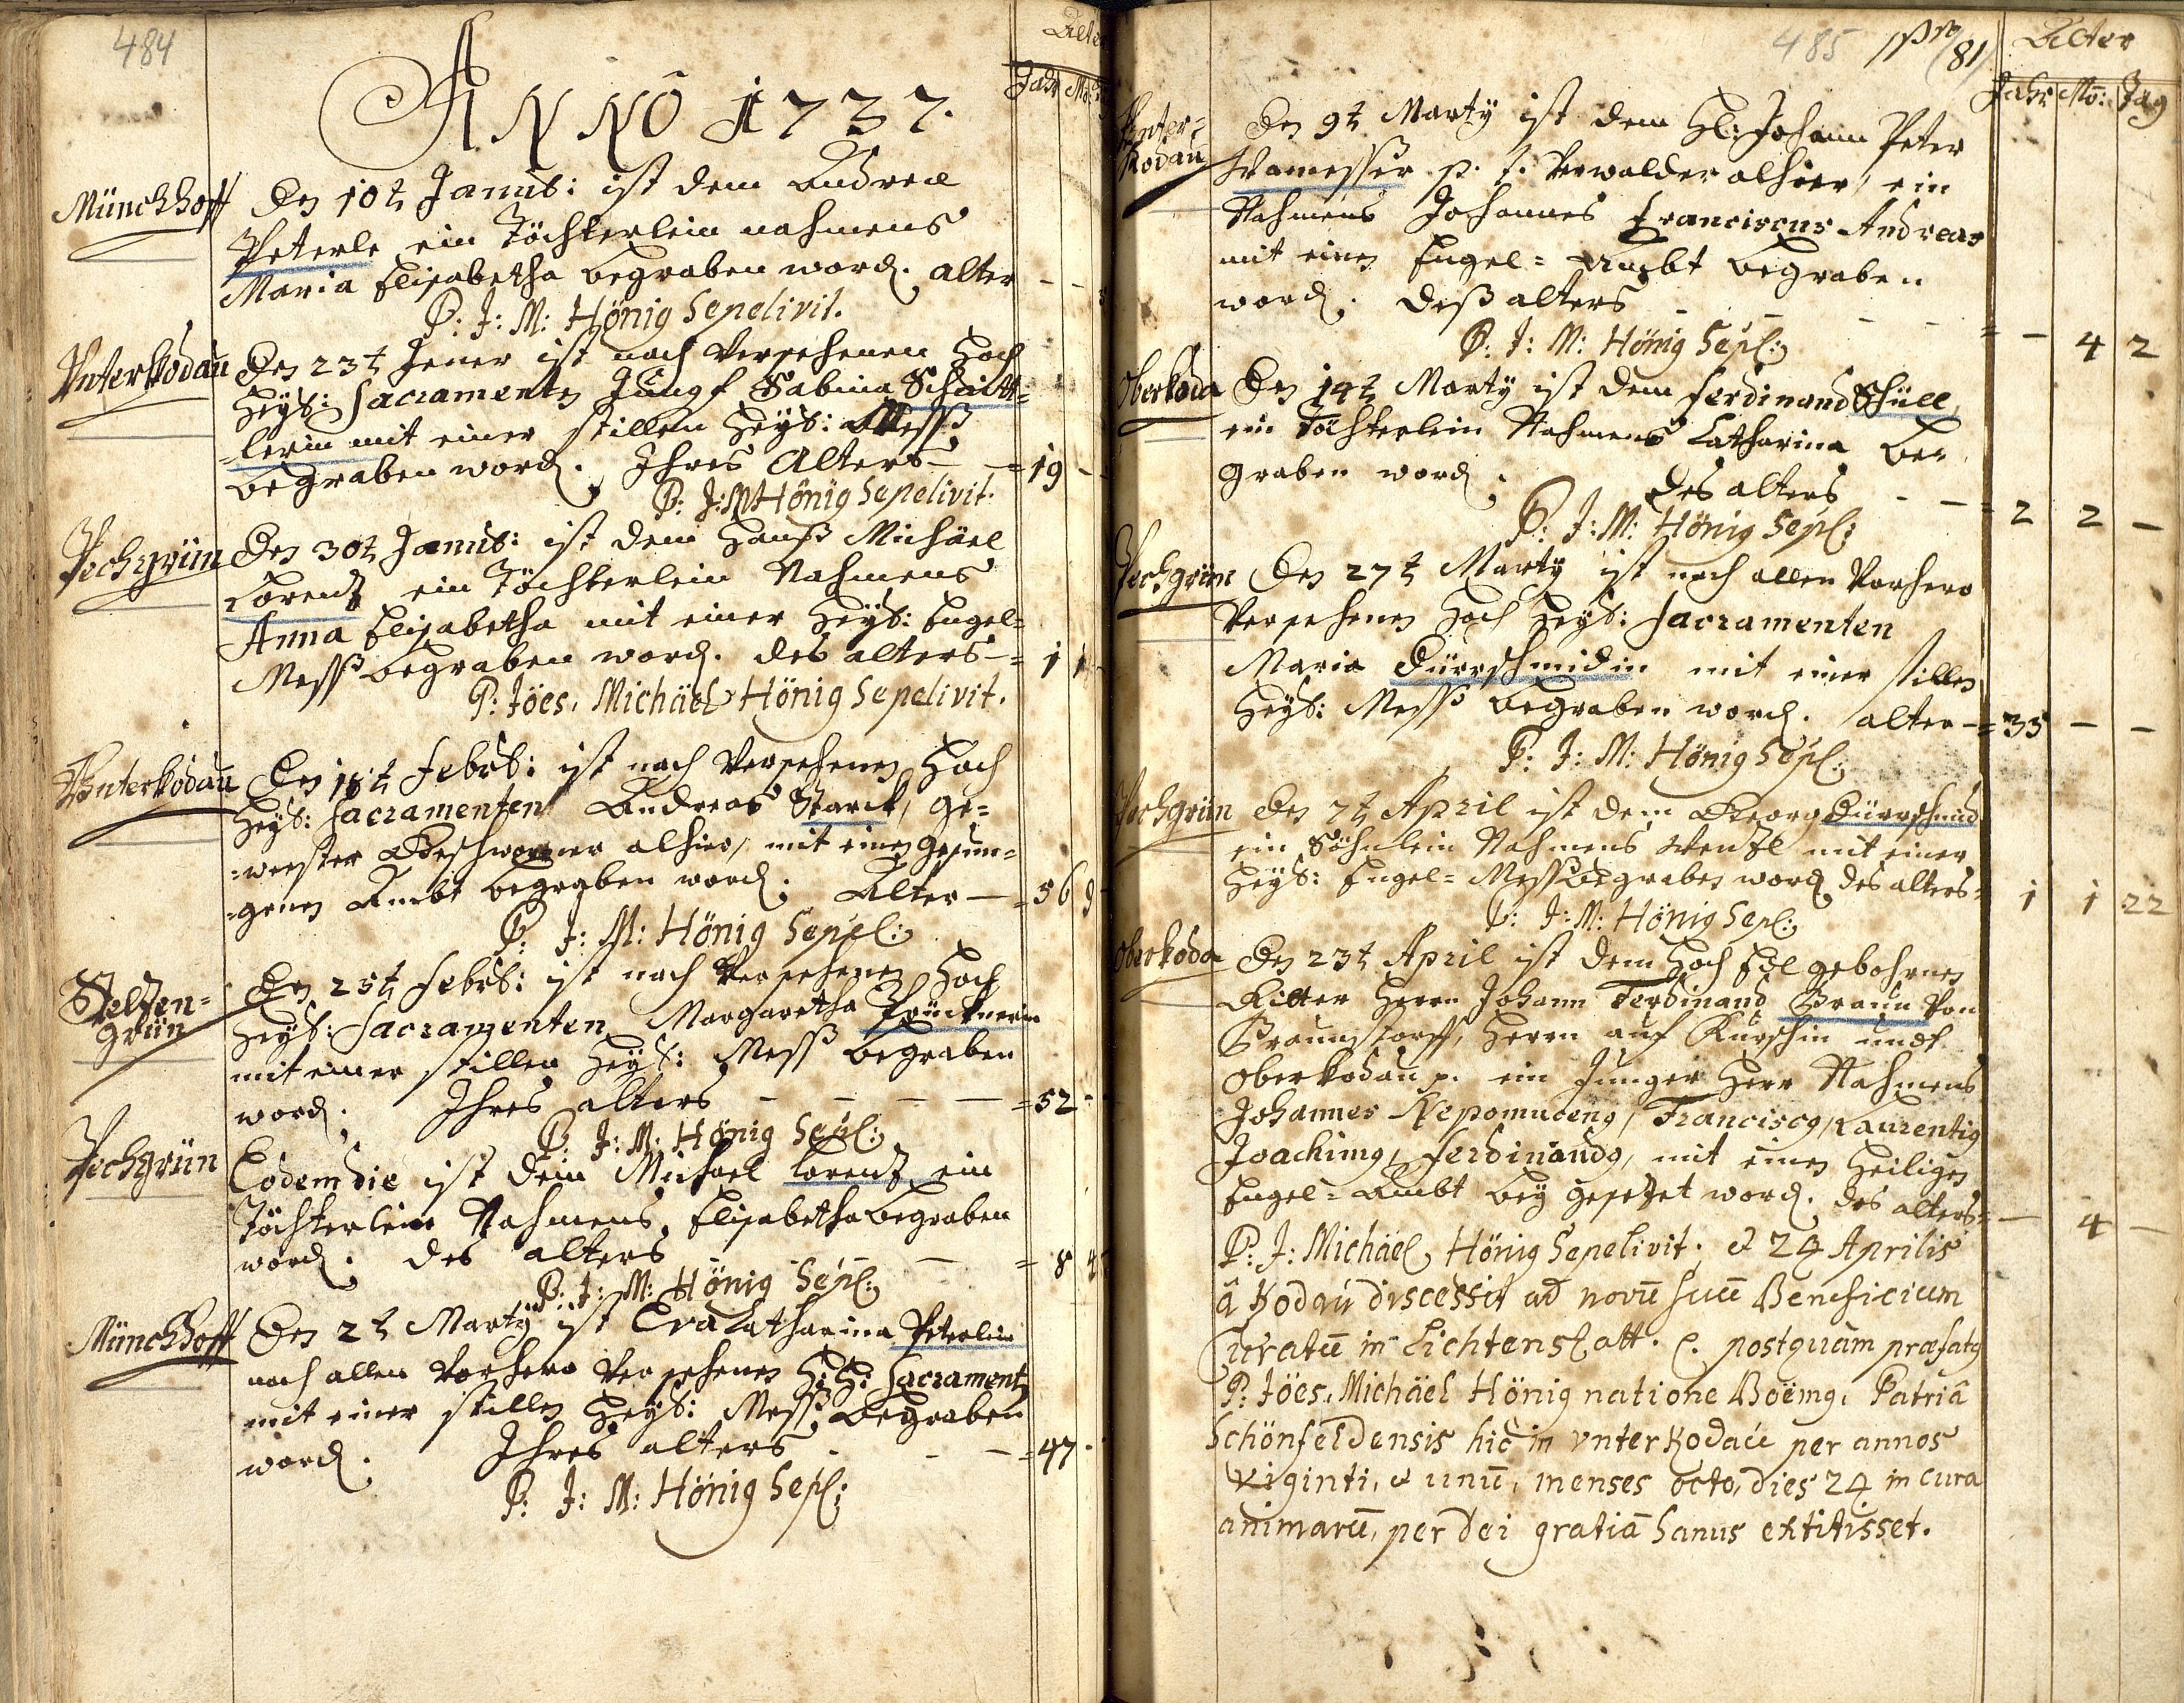 484
Alter
Jahr Mo:
ANNO 1737.
Münchhoff
Den 10t Janus: ist dem Andreæ
Peterle ein Töchterlein nahmens
Maria Elisabetha begraben word. alter - -
P: J: M: Hönig Sepelivit.
Unterkodau
Den 23t Jener ist nach Versehenen Hoch
Heyl: Sacramenten Jungf Sabina Schaitt=
=lerin mit einer stillen Heyl: Mess
begraben word. Ihres Alters — = 19 -
P: J: M Hönig Sepelivit.
Pechgrün
Den 30t Janus: ist dem Hanß Michäel
Lorentz ein Töchterlein Nahmens
Anna Elisabetha mit einer Heyl: Engel=
Mess begraben word. des alters — = 1 1
P: Jöes. Michäel Hönig Sepelivit.
Unterkodau
Den 18t Febrs: ist nach Versehenen Hoch
Heyl: Sacramenten Andreas Starck, ge=
=wester Geschworner alhier, mit einen gesun=
=genen Ambt begraben word. Alter — = 56 9
P: J: M: Hönig Sepel:
Stelzen=
grün
Den 25t Febrs: ist nach Versehenen Hoch
Heyl: Sacramenten Margaretha Prücknerin
mit einer stillen Heyl: Mess begraben
word. Ihres alters - - - — = 52 -
P: J: M: Hönig Sepl:
Pechgrün
Eodem die ist dem Michael Lorentz ein
Töchterlein Nahmens, Elisabetha begraben
word. des alters - - — = 8
P: J: M: Hönig Sepl:
Münchhoff
Den 2t Marty ist Eva Catharina Peterlein
nach allen Vorhero Versehenen H: H: Sacrament
mit einer stillen Heyl: Mess begraben
word. Ihres alters - - — = 47 -
P: J: M: Hönig Sepl:
485 (81)
Alter
Jahr Mo: Tag
Unter=
Kodau
Den 9t Marty ist dem Hl: Johann Peter
Wamesser p. t. Verwalder alhier, ein
Nahmens Johannes Franciscus Andreas
mit einen Engel= Ambt begraben
word. deß alters - - - - = - 4 2
P: J: M: Hönig Sepl:
Oberkoda
Den 14t Marty ist dem Ferdinand Schüll
ein Töchterlein Nahmens Catharina be=
graben word. des alters - — = 2 2 —
P: J: M: Hönig Sepl:
Pechgrün
Den 27t Marty ist nach allen Vorhero
Versehenen Hoch Heyl: Sacramenten
Maria Dürrschmidin mit einer stillen
Heyl: Mess begraben word. alter — = 35 — —
P: J: M: Hönig Sepl:
Pechgrün
Den 7t April ist dem Georg Dürrschmid
ein Söhnlein Nahmens Wenzl mit einer
Heyl: Engel= Mess begraben word des alters = 1 1 22
P: J: M: Hönig Sepl:
Oberkoda
Den 23t April ist dem Hoch Edl gebohrnen
Ritter Herrn Johann Ferdinand Braun Von
Braunstorff, Herrn auf Kurschin undt
Oberkodau p. ein Junger Herr Nahmens
Johannes Nepomuceng, Franciscg, Laurentig
Joachimg, Ferdinandg, mit einen Heiligen
Engel= Ambt bey gesetzet word. des alters = — 4 —
P: J: Michäel Hönig Sepelivit. et 24 Aprilis
â Kodau discessit ad novū suū Beneficium
Curatū in Lichtenstatt. postquàm præfatg
P: Jöes. Michäel Hönig natione Boëmg. Patriâ
Schönfeldensis hîc in vnter Kodau per annos
viginti, et unū, menses octo, dies 24 in cura
animarū, per dei gratiā sanus extitisset.